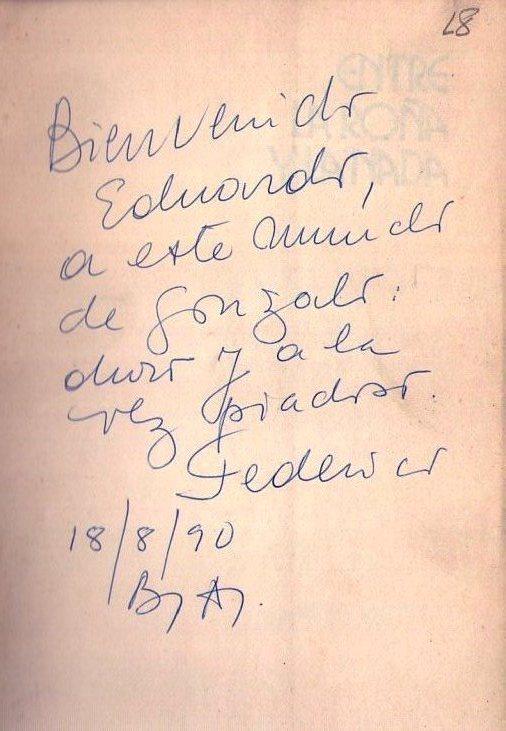 18
ENTRE
LA ROÑA
Y LA NADA
Bienvenido
Eduardo,
a este mundo
de Gonzalo:
duro y a la
vez piadoso.
Federico
18/8/90
Bs As.